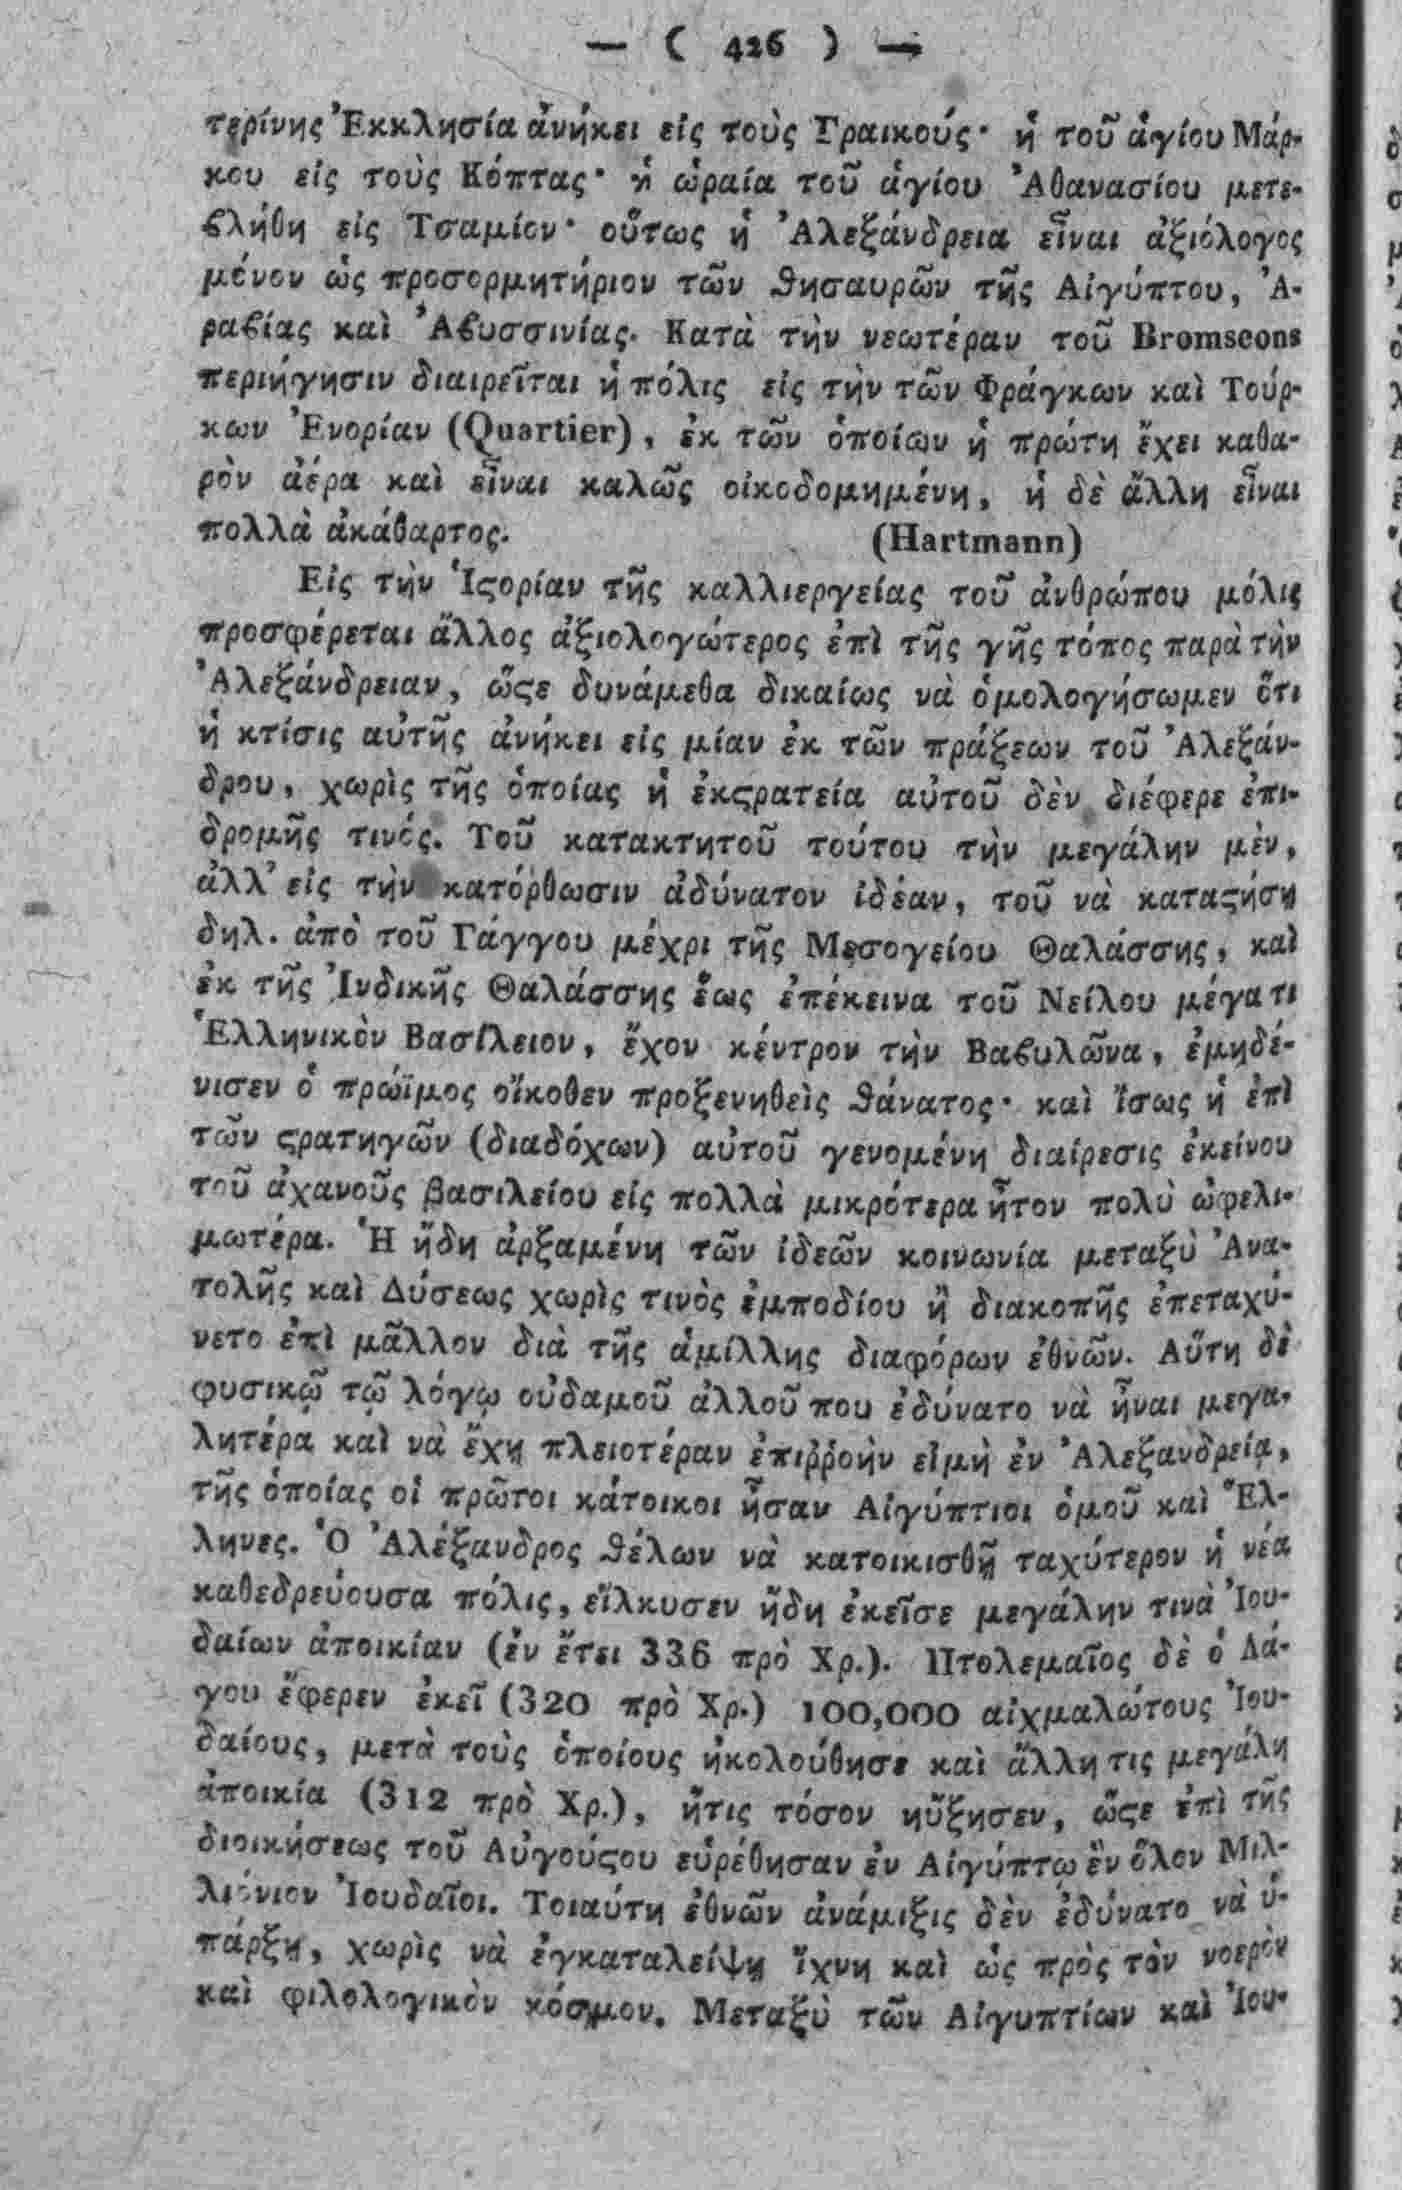 — ( 426 ) —
τερίνης Ἐκκλησία ἀνήκει εἰς τοὺς Γραικούς· ἡ τοῦ ἁγίου Μάρ-
κου εἰς τοὺς Κόπτας· ἡ ὡραία τοῦ ἁγίου Ἀθανασίου μετε-
ϐλήθη εἰς Τσαμίον· οὕτως ἡ Ἀλεξάνδρεια εἶναι ἀξιόλογος
μόνον ὡς προσορμητήριον τῶν ϑησαυρῶν τῆς Αἰγύπτου, Ἀ-
ραϐίας καὶ Ἀϐυσσινίας. Κατὰ τὴν νεωτέραν τοῦ Bromseons
περιήγησιν διαιρεῖται ἡ πόλις εἰς τὴν τῶν Φράγκων καὶ Τούρ-
κων Ἐνορίαν (Quartier), ἐκ τῶν ὁποίων ἡ πρώτη ἔχει καθα-
ρὸν ἀέρα καὶ εἶναι καλῶς οἰκοδομημένη, ἡ δὲ ἄλλη εἶναι
πολλὰ ἀκάθαρτος. (Hartmann)
Εἰς τὴν Ἱϛορίαν τῆς καλλιεργείας τοῦ ἀνθρώπου μόλις
προσφέρεται ἄλλος ἀξιολογώτερος ἐπὶ τῆς γῆς τόπος παρὰ τὴν
Ἀλεξάνδρειαν, ὥϛε δυνάμεθα δικαίως νὰ ὁμολογήσωμεν ὅτι
ἡ κτίσις αὐτῆς ἀνήκει εἰς μίαν ἐκ τῶν πράξεων τοῦ Ἀλεξάν-
δρου, χωρὶς τῆς ὁποίας ἡ ἐκϛρατεία αὐτοῦ δὲν διέφερε ἐπι-
δρομῆς τινός. Τοῦ κατακτητοῦ τούτου τὴν μεγάλην μὲν,
ἀλλ’ εἰς τὴν κατόρθωσιν ἀδύνατον ἰδέαν, τοῦ νὰ καταϛήσῃ
δηλ. ἀπὸ τοῦ Γάγγου μέχρι τῆς Μεσογείου Θαλάσσης, καὶ
ἐκ τῆς Ἰνδικῆς Θαλάσσης ἕως ἐπέκεινα τοῦ Νείλου μέγα τι
Ἑλληνικὸν Βασίλειον, ἔχον κέντρον τὴν Βαϐυλῶνα, ἐμηδέ-
νισεν ὁ πρώϊμος οἴκοθεν προξενηθεὶς ϑάνατος· καὶ ἴσως ἡ ἐπὶ
τῶν ϛρατηγῶν (διαδόχων) αὐτοῦ γενομένη διαίρεσις ἐκείνου
τοῦ ἀχανοῦς βασιλείου εἰς πολλὰ μικρότερα ἦτον πολὺ ὠφελι-
μωτέρα. Ἡ ἤδη ἀρξαμένη τῶν ἰδεῶν κοινωνία μεταξὺ Ἀνα-
τολῆς καὶ Δύσεως χωρὶς τινὸς ἐμποδίου ἢ διακοπῆς ἐπεταχύ-
νετο ἐπὶ μᾶλλον διὰ τῆς ἁμίλλης διαφόρων ἐθνῶν. Αὕτη δὲ
φυσικῷ τῷ λόγῳ οὐδαμοῦ ἀλλοῦ που ἐδύνατο νὰ ἦναι μεγα-
λητέρα καὶ νὰ ἔχῃ πλειοτέραν ἐπιῤῥοὴν εἰμὴ ἐν Ἀλεξανδρείᾳ,
τῆς ὁποίας οἱ πρῶτοι κάτοικοι ἦσαν Αἰγύπτιοι ὁμοῦ καὶ Ἕλ-
ληνες. Ὁ Ἀλέξανδρος ϑέλων νὰ κατοικισθῇ ταχύτερον ἡ νέα
καθεδρεύουσα πόλις, εἵλκυσεν ἤδη ἐκεῖσε μεγάλην τινὰ Ἰου-
δαίων ἀποικίαν (ἐν ἔτει 336 πρὸ Χρ.). Πτολεμαῖος δὲ ὁ Λά-
γου ἔφερεν ἐκεῖ (320 πρὸ Χρ.) 100,000 αἰχμαλώτους Ἰου-
δαίους, μετὰ τοὺς ὁποίους ἠκολούθησε καὶ ἄλλη τις μεγάλη
ἀποικία (312 πρὸ Χρ.), ἥτις τόσον ηὔξησεν, ὥϛε ἐπὶ τῆς
διοικήσεως τοῦ Αὐγούϛου εὑρέθησαν ἐν Αἰγύπτῳ ἓν ὅλον Μιλ-
λιόνιον Ἰουδαῖοι. Τοιαύτη ἐθνῶν ἀνάμιξις δὲν ἐδύνατο νὰ ὑ-
πάρξῃ, χωρὶς νὰ ἐγκαταλείψῃ ἴχνη καὶ ὡς πρὸς τὸν νοερὸν
καὶ φιλολογικὸν κόσμον. Μεταξὺ τῶν Αἰγυπτίων καὶ Ἰου-